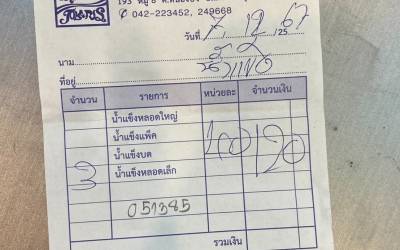 193 หมู่ 8
042-223452, 249668
วันที่ 7, 12, 67
นาม
ที่อยู่
จำนวน รายการ หน่วยละ จำนวนเงิน
น้ำแข็งหลอดใหญ่
น้ำแข็งแพ็ค
น้ำแข็งบด
3 น้ำแข็งหลอดเล็ก 40 120
051385
รวมเงิน